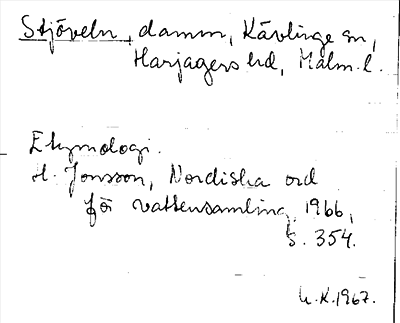 Stjöveln, damm, Kävlinge sn,
Harjagers hd, Malm. l.
Etymologi.
H. Jonsson, Nordiska ord
för vattensamling, 1966,
s. 354.
U.K. 1967.